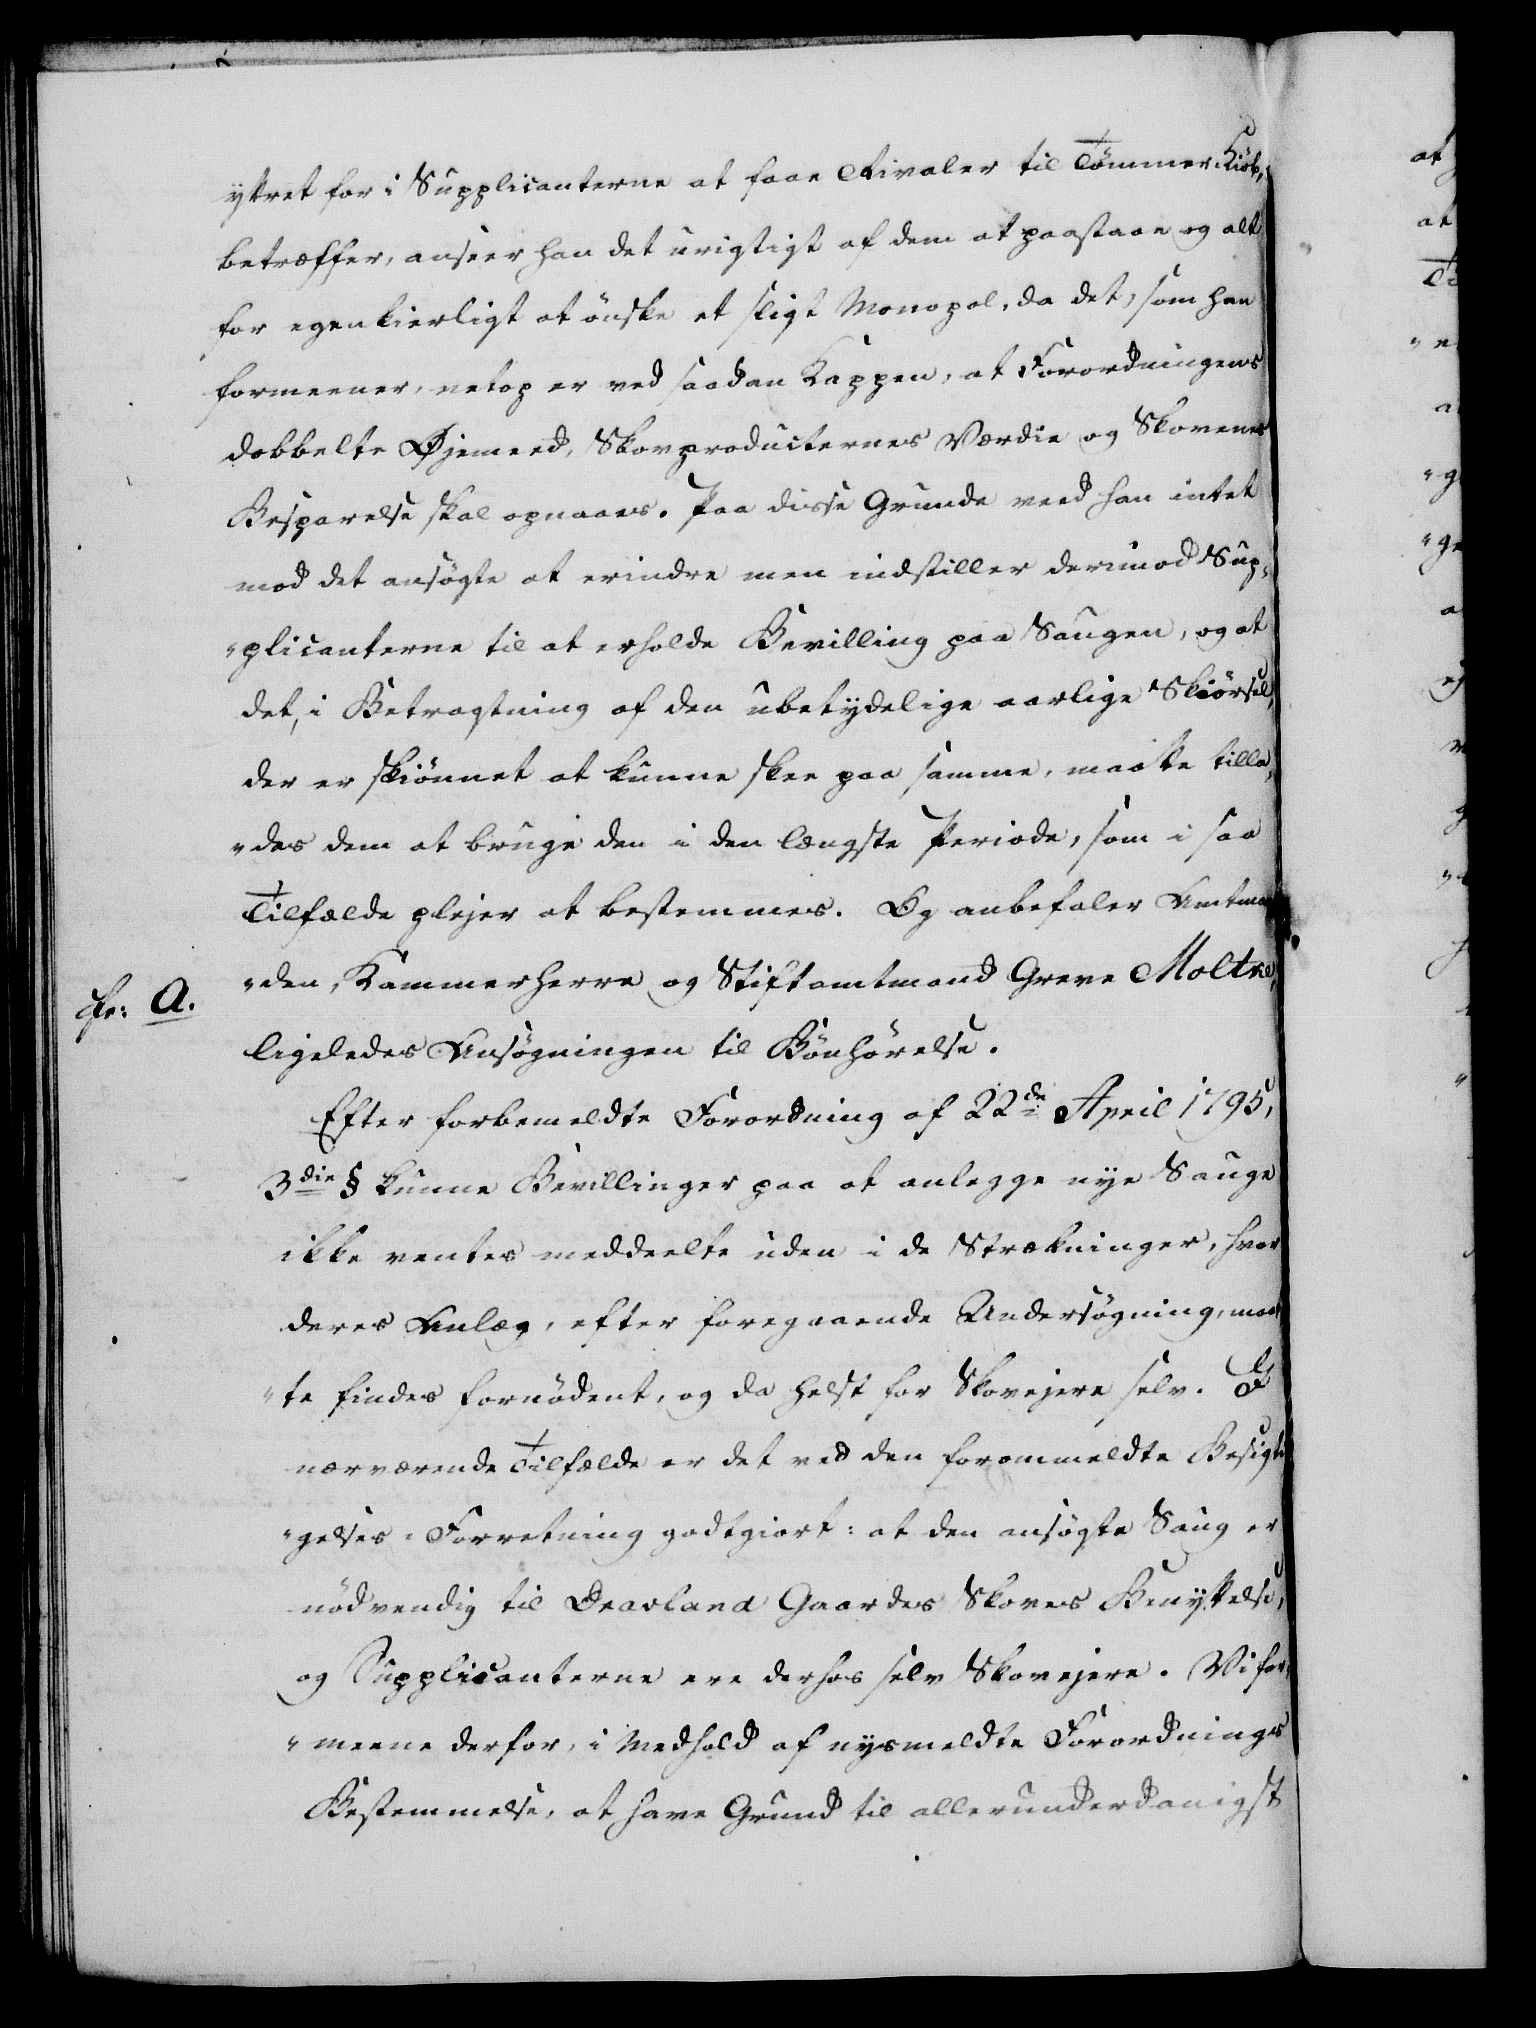 yttret for i Supplicanterne at faae Rivaler til Tömmer Kiöb,
betræffer, anseer han det urigtigt af dem at paastaae og alt
for egenkierligt at önske et sligt Monopol, da det, som han
formeener, netop er ved saadan Kappen, at Forordningens
dobbelte Øjemeed, Skovproducternes Værdie og Skovenes
Besparelse skal opnaaes. Paa disse Grunde veed han intet
mod det ansögte at erindre men indstiller derimod Sup-
"plicanterne til at erholde Bevilling paa Saugen, og at
det, i Betragtning af den ubetydelige aarlige Skiörsel,
der er skiönnet at kunne skee paa samme, maatte tilla-
"des dem at bruge den i den længste Periode, som i saa
Tilfælde plejer at bestemmes. Og anbefaler Amtman-
"den, Kammerherre og Stiftamtmand Greve Moltke,
cfr: A.
ligeledes Ansögningen til Bönhörelse.
Efter forbemeldte Forordning af 22de April 1795,
3die § kunne Bevillinger paa at anlegge nye Sauge
ikke ventes meddeelte uden i de Strækninger, hvor
deres Anlæg, efter foregaaende Undersögning, maat-
"te findes fornödent, og da helst for Skovejere selv. I
nærværende Tilfælde er det ved den forommeldte Besigti-
"gelses-Forretning godtgiort: at den ansögte Saug er
nödvendig til Dravland Gaardes Skoves Benyttelse,
og Supplicanterne ere derhos selv Skovejere. Vi for-
"meene derfor, i Medhold af nysmeldte Forordnings
Bestemmelse, at have Grund til allerunderdanigst
at
at